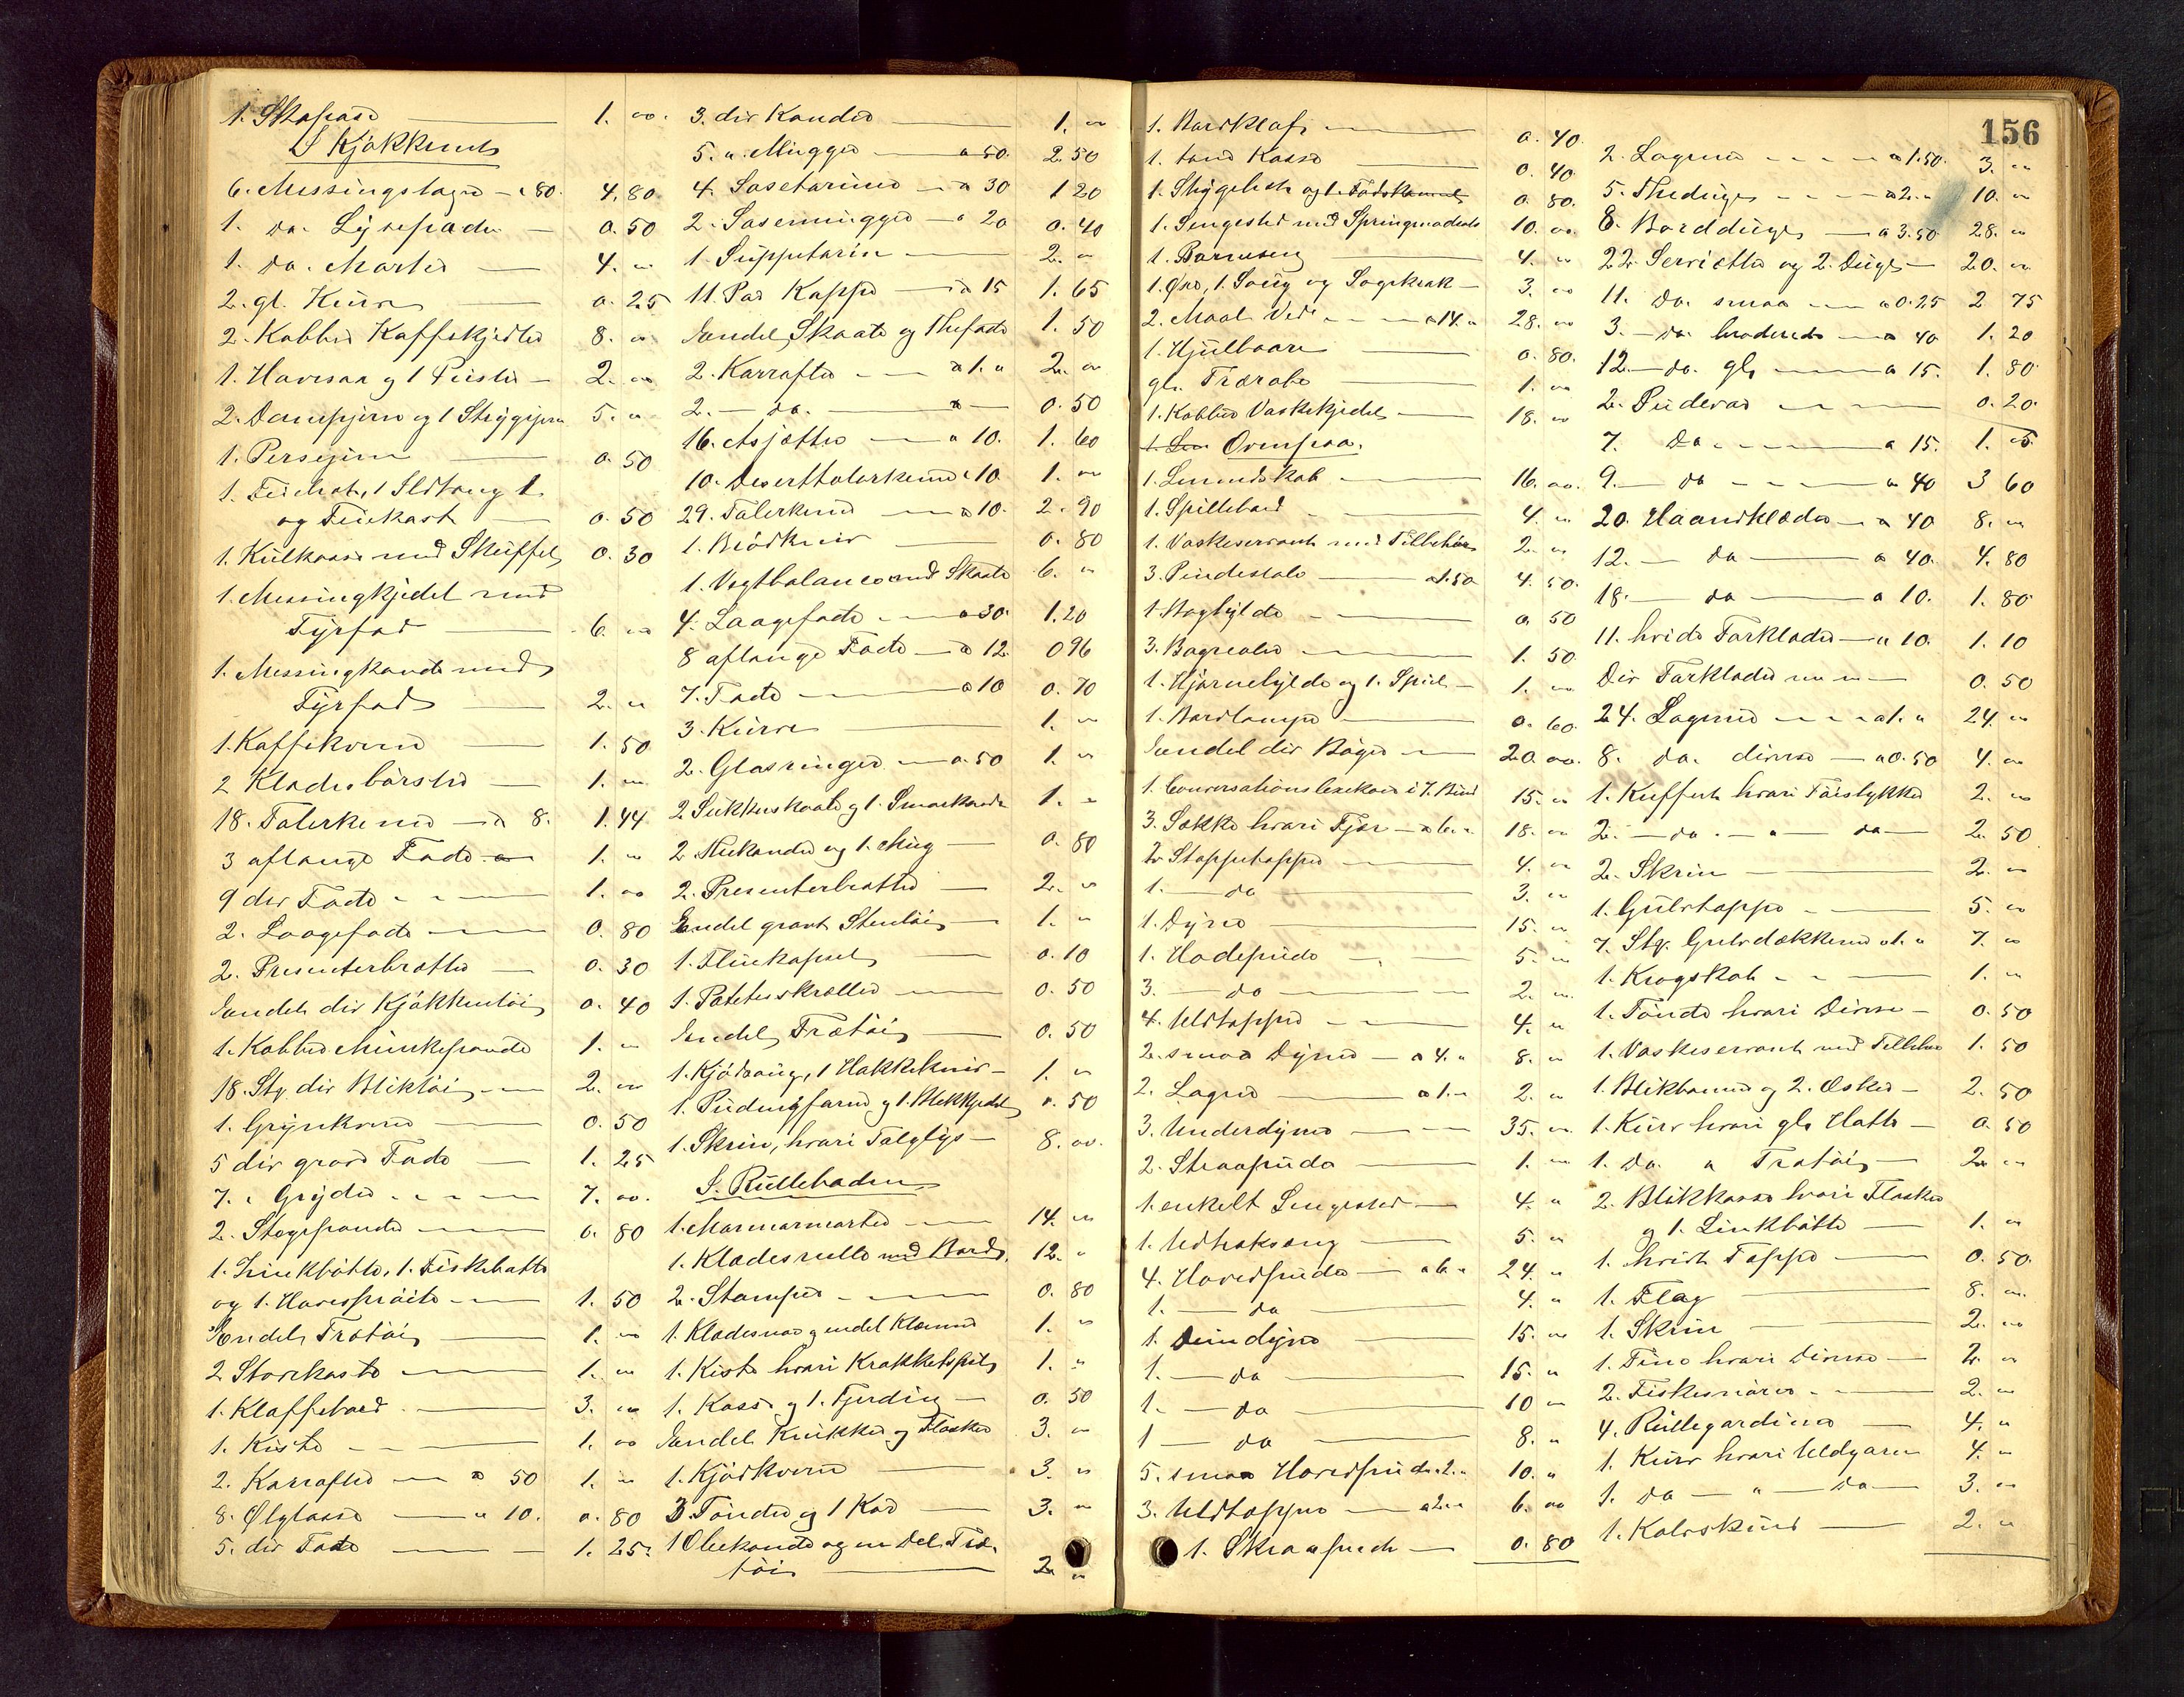 1. Skapase 1. "
I Kjøkkenet
6. Messingstager a 80. 4. 80
1. do. Lysepander 0. 50
1. do. Morter 4. "
2. gl. Kurve 0. 25
2. Kobber Kaffekjedler 8. "
1. Havesax og 1 Puster 2. "
2. Dampjern og 1 Strygejern 5. "
1. Persejern 0. 50
1. Feiebret, 1 Ildtang
og Feiekost 0. 50
1. Kulkasse med Skuffel 0. 30
1. Messingkjedel med
Fyrfad 6. "
1. Messingkande med
Fyrfad 2. "
1. Kaffekvern 1. 50
2 Klædesbørster 1. "
18. Talerkener a 8. 1. 44
3 aflange Fade 1. "
9 div Fade 1. "
2. Laagefade 0. 80
2. Presenterbretter 0. 30
Endel div Kjøkkentøi 0. 40
1. Kobber Munkepande 1. "
18. Stk div Bliktøi 2. "
1. Grynkvern 0. 50
5 div grove Fade 1. 25
7. " Gryder 7. "
2. Stegepander 0. 80
1. Zinkbøtte, 1. Fiskebøtte
og 1. Havesprøite 1. 50
Endel Trætøi 1. "
2 Storkaste 1. "
1. Klaffebord 3. "
1. Kiste 1. "
2. Karrafler a 50 1. "
8. Ølglasse a 10. 0. 80
5. div Fade 1. 25
3. div Kander 1. "
5. " Mugger a 50. 2. 50
4. Soseteriner a 30 1 20
2. Sosemugger a 20 0. 40
1 Suppeterin 2. "
11. Par Kopper a 15 1. 65
Endel Skaale og Thefade 1. 50
2. Karrafler a 1. " 2. "
2. do. 0. 50
16. Asjetter a 10. 1. 60
10. Deserttalerkener a 10 1. "
29. Talerkener a 10. 2. 90
1. Brødkniv 0. 80
1. Vegtbalance med Skaale 6. "
4. Laagefade a 30. 1. 20
8 aflange Fade a 12. 0 96
7. Fade a 10 0. 70
3. Kurve 1. "
2. Glasringer a 50 1. "
2 Sukkerskaale og 1. Smørkande 1. "
2 Thekander og 1. Mug 0. 80
2. Presenterbretter 2. "
Endel grovt Stentøi 1. "
1. Fluekapsel 0. 10
1. Potetesskreller 0. 50
Endel Trætøi 0. 50
1. Kjødsaug, 1 Hakkekniv 1. "
1. Pudingform og 1. Blikkjedel 0. 50
1. Skrin, hvori Talglys 8. "
I. Rulleboden
1. Marmormorter 14. "
1. Klædesrulle med Bord 12. "
2. Stamper 0. 80
1. Klædesnor og endel Klemmer 1. "
1. Kiste hvori Krokketspil 1. "
1. Kasse og 1. Fjerding 0. 50
Endel Krukker og Flasker 3. "
1. Kjødkvern 3. "
3 Tønder og 1 Kar 3. "
1 Oliekande og en Del Træ-
tøi 2. "
156
1. Bordklaf 0. 40
1. tom Kasse 0. 40
1. Strygebret og 1. Fodskammel 0. 80.
1. Sengested med Springmadrats 10. "
1. Barneseng 4. "
1. Øxe, 1. Saug og Saugkrak 3. "
2. Maal Ved a 14. " 28. "
1. Hjulbaare 0. 80.
gl. Trærabe 1. "
1. Kobber Vaskekjedel 18. "
Ovenpaa.
1. Linnedskab 16. "
1. Spillebord 4. "
1. Vaskeservant med Tilbehør 2. "
3. Pindestole a 1.50 4. 50.
1. Boghylde 0. 50
3. Bogreoler 1. 50
1. Hjørnehylde og 1. Speil 1. "
1. Bordlampe 0. 60.
Endel div Bøger 20. "
1. Conversationslexikon i 7. Bind 15. "
3. Sække hvori Fjær a 6. " 18. "
2 Stoppetepper 4. "
1. do 3. "
1. Dyne 15. "
1. Hodepude 5. "
3. do 2. "
4. Uldtepper 4. "
2. smaa Dyner a 4. " 8. "
2. Lagner a 1. " 2. "
3. Underdyner 35. "
2. Straapuder 1. "
1. enkelt Sengested 4. "
1. Udtræksseng 5. "
4. Hovedpuder a 6. " 24. "
1. do 4. "
1. Dundyne 15. "
1. do 15. "
1. do 10 "
1 do 8. "
5. smaa Hovedpuder a 2. " 10. "
3. Uldtepper a 2. " 6. "
1. Straapude 0. 80
2. Lagener a 1.50. 3. "
5. Theduge a 2. " 10. "
8. Bordduge a 3.50 28. "
22 Servietter og 2. Duge 20. "
11. do. smaa a 0.25 2 75
3. do. broderede a 40 1. 20
12. do. gl. a 15. 1. 80
2. Pudevar 0. 20.
7. Do a 15. 1. 05
9. do a 40 3 60
20. Haandklæder a 40 8. "
12. do a 40. 4. 80
18. do a 10. 1. 80
11. hvide Forklæder a 10. 1. 10
Div Forklæder 0. 50
24. Lagener a 1. " 24. "
8. do. diverse a 0. 50 4. "
1. Kuffert hvori Tøistykker 2. "
2. do. " do 2. 50
2. Skrin 2. "
1. Gulvteppe 5. "
7. Stk. Gulvdækkener a 1. " 7. "
1. Krogskab 1. "
1. Tønde hvori Diverse 0. 50
1. Vaskeservant med Tilbehør 1. 50
1. Blikbomme og 2. Æsker 2. 50
1. Kurv hvori gl. Hatte 0. 50
1. Do. " Trætøi 2. "
2. Blikkasse hvori Flasker
og 1. Zinkbøtte 1. "
1. hvidt Teppe 0. 50.
1. Flag 8. "
1. Skrin 2. "
1. Tine hvori Diverse 2. "
2. Fiskesnører 2. "
4. Rullegardiner 4. "
1. Kurv hvori Uldgarn 4. "
1. Do " Do 3. "
1. Kalvskind 2. "